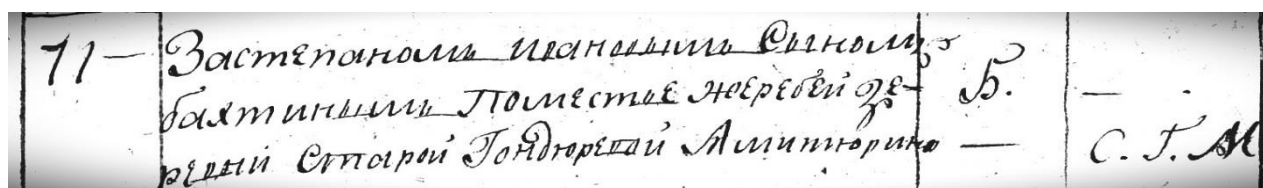 71 — Застепаномъ ивановымъ Сыномъ
бахтинымъ Поместье жеребей де- Б. —
ревни Старой Гондюревой Амитюрино — С. Г. М